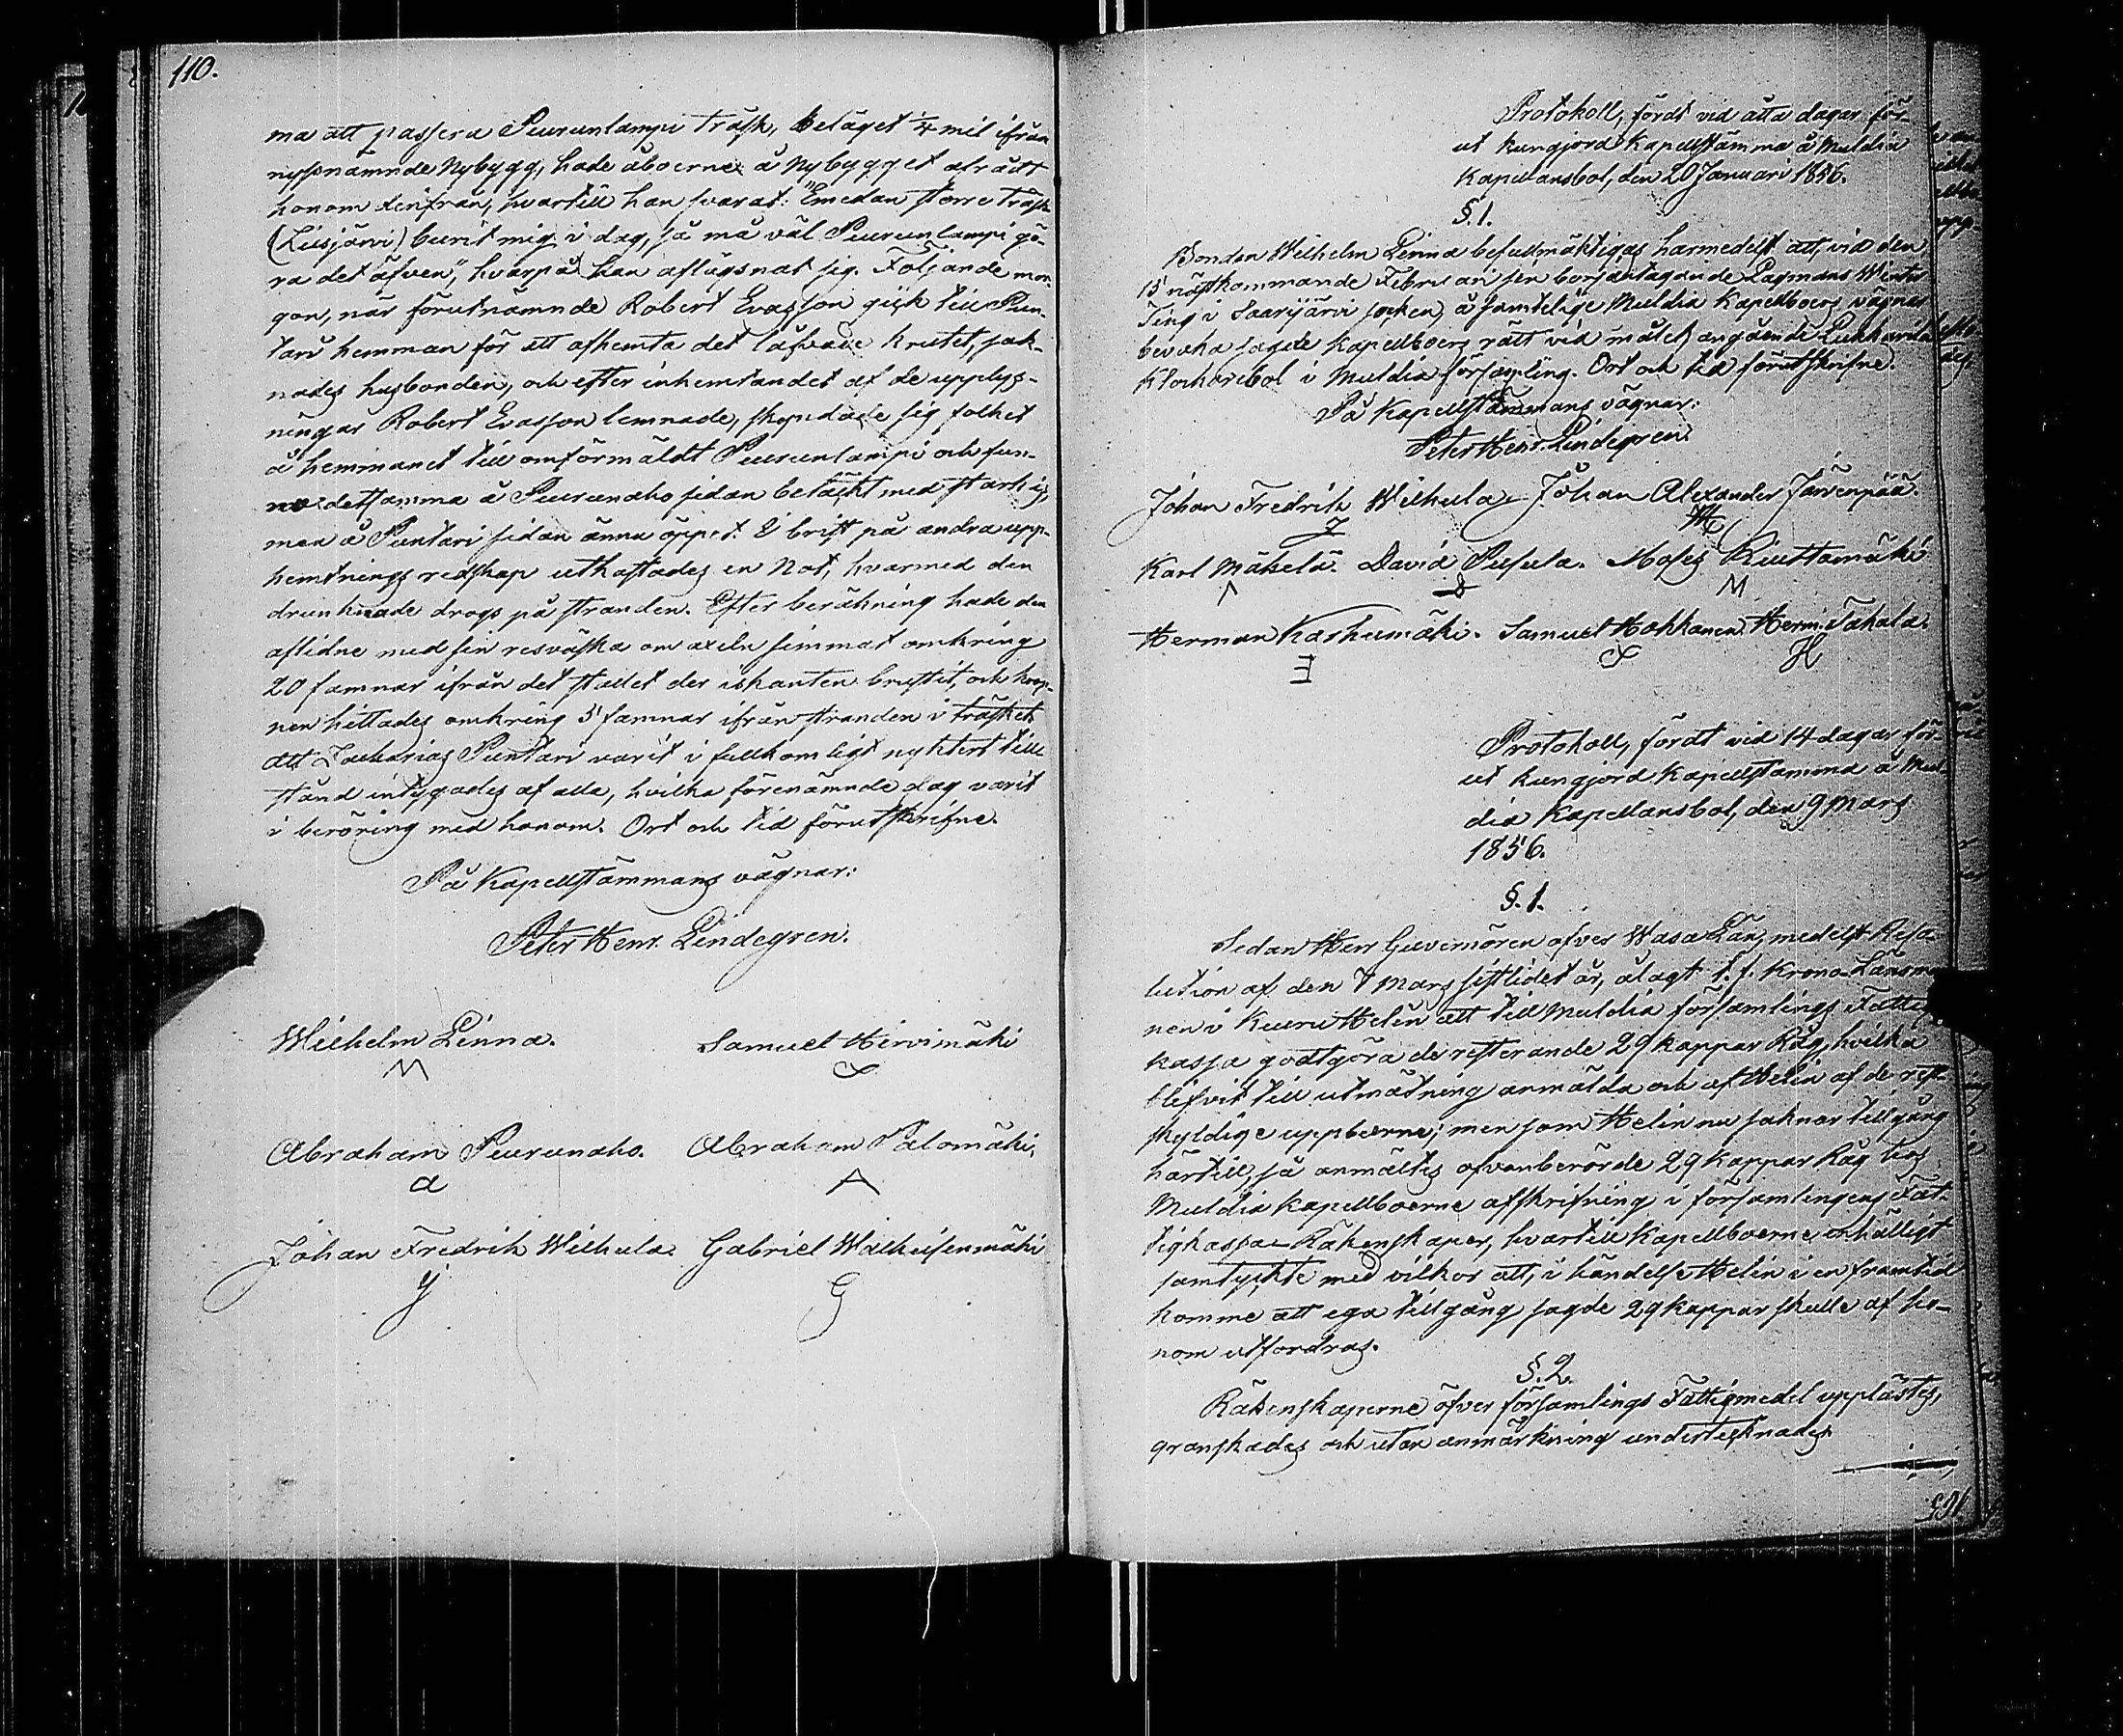 110.
ma att passera Peurunlampi träsk, beläget 1/4 mil ifrån
nyssnämnde Nybygg, hade åboerne å Nybygget afrådt
honom derifrån, hvartill han svarat: "Emedan större träsk
(Liisjärvi) burit mig i dag, så må väl Peurunlampi gö-
ra det äfven", hvarpå han aflägsnat sig. Följande mor-
gon, när förutnämnde Robert Evasson gick till Pun-
tari hemman för att afhemta det låfvade krutet, sak-
nades husbonden, och efter inhemtandet af de upplys-
ningar Robert Evasson lemnade, skyndade sig folket
å hemmanet till omförmäldt Peurunlampi och fun-
no detsamma å Peurunaho sidan betäckt med stark is,
men å Puntari sidan ännu öppet. I brist på andra upp-
hemtnings redskap utkastades en Not, hvarmed den
drunknade drogs på stranden. Efter beräkning hade den
aflidne med sin resväska om axeln simmat omkring
20 famnar ifrån det stället der iskanten brustit, och krop-
pen hittades omkring 5 famnar ifrån stranden i träsket.
Att Zacharias Puntari varit i fullkomligt nyktert till-
stånd intygades af alla, hvilka förenämnde dag varit
i beröring med honom. Ort och tid förutskrifne.
På Kapellstämmans vägnar:
Peter Henr. Lindegren.
Wilhelm Linna. Samuel Hirvimäki
M S
Abraham Peurunaho. Abraham Palomäki,
a A
Johan Fredrik Wilhula. Gabriel Walkeisenmäki
J G
Protokoll, fördt vid åtta dagar för-
ut kungjord Kapellstämma å Muldia
Kapellansbol, den 20 Januari 1856.
§. 1.
Bonden Wilhelm Linna befullmäktigas härmedelst att, vid den
15 nästkommande Februari sin början tagande Lagmans Winter
Ting i Saarijärvi socken, å samtelige Muldia Kapellboers vägnar
bevaka sagde Kapellboers rätt vid målet angående Lukkarila
Klockarebol i Muldia församling. Ort och tid förutskrifne.
På Kapellstämmans vägnar:
Peter Henr. Lindegren.
Johan Fredrik Wilhula. Johan Alexander Järvenpää.
J
Karl Mäkelä. David Pusula. Moses Riuttamäki
Λ D M
Herman Kaskumäki. Samuel Hokkanen. Herm. Takala.
E S H
Protokoll, fördt vid 14 dagar för-
ut kungjord Kapellstämma å Mul-
dia Kapellansbol, den 9 Mars
1856.
§. 1.
Sedan Herr Guvernören öfver Wasa Län, medelst Reso-
lution af den 7 Mars sistlidet år, ålagt t. f. Krono-Länsman-
nen i Keuru Helin att till Muldia församlings Fattig-
kassa godtgöra de resterande 29 kappar Råg, hvilka
blifvit till utmätning anmälda och af Helin af de rest-
skyldige uppburne; men som Helin nu saknar tillgång
härtill, så anmältes ofvanberörde 29 kappar Råg hos
Muldia Kapellboerne afskrifning i församlingens Fat-
tigkassa-Räkenskaper, hvartill Kapellboerne enhälligt
samtyckte med vilkor att, i händelse Helin i en framtid
komme att ega tillgång sagde 29 kappar skulle af ho-
nom utfordras.
§. 2.
Räkenskaperne öfver församlings Fattigmedel upplästes,
granskades och utan anmärkning undertecknades.